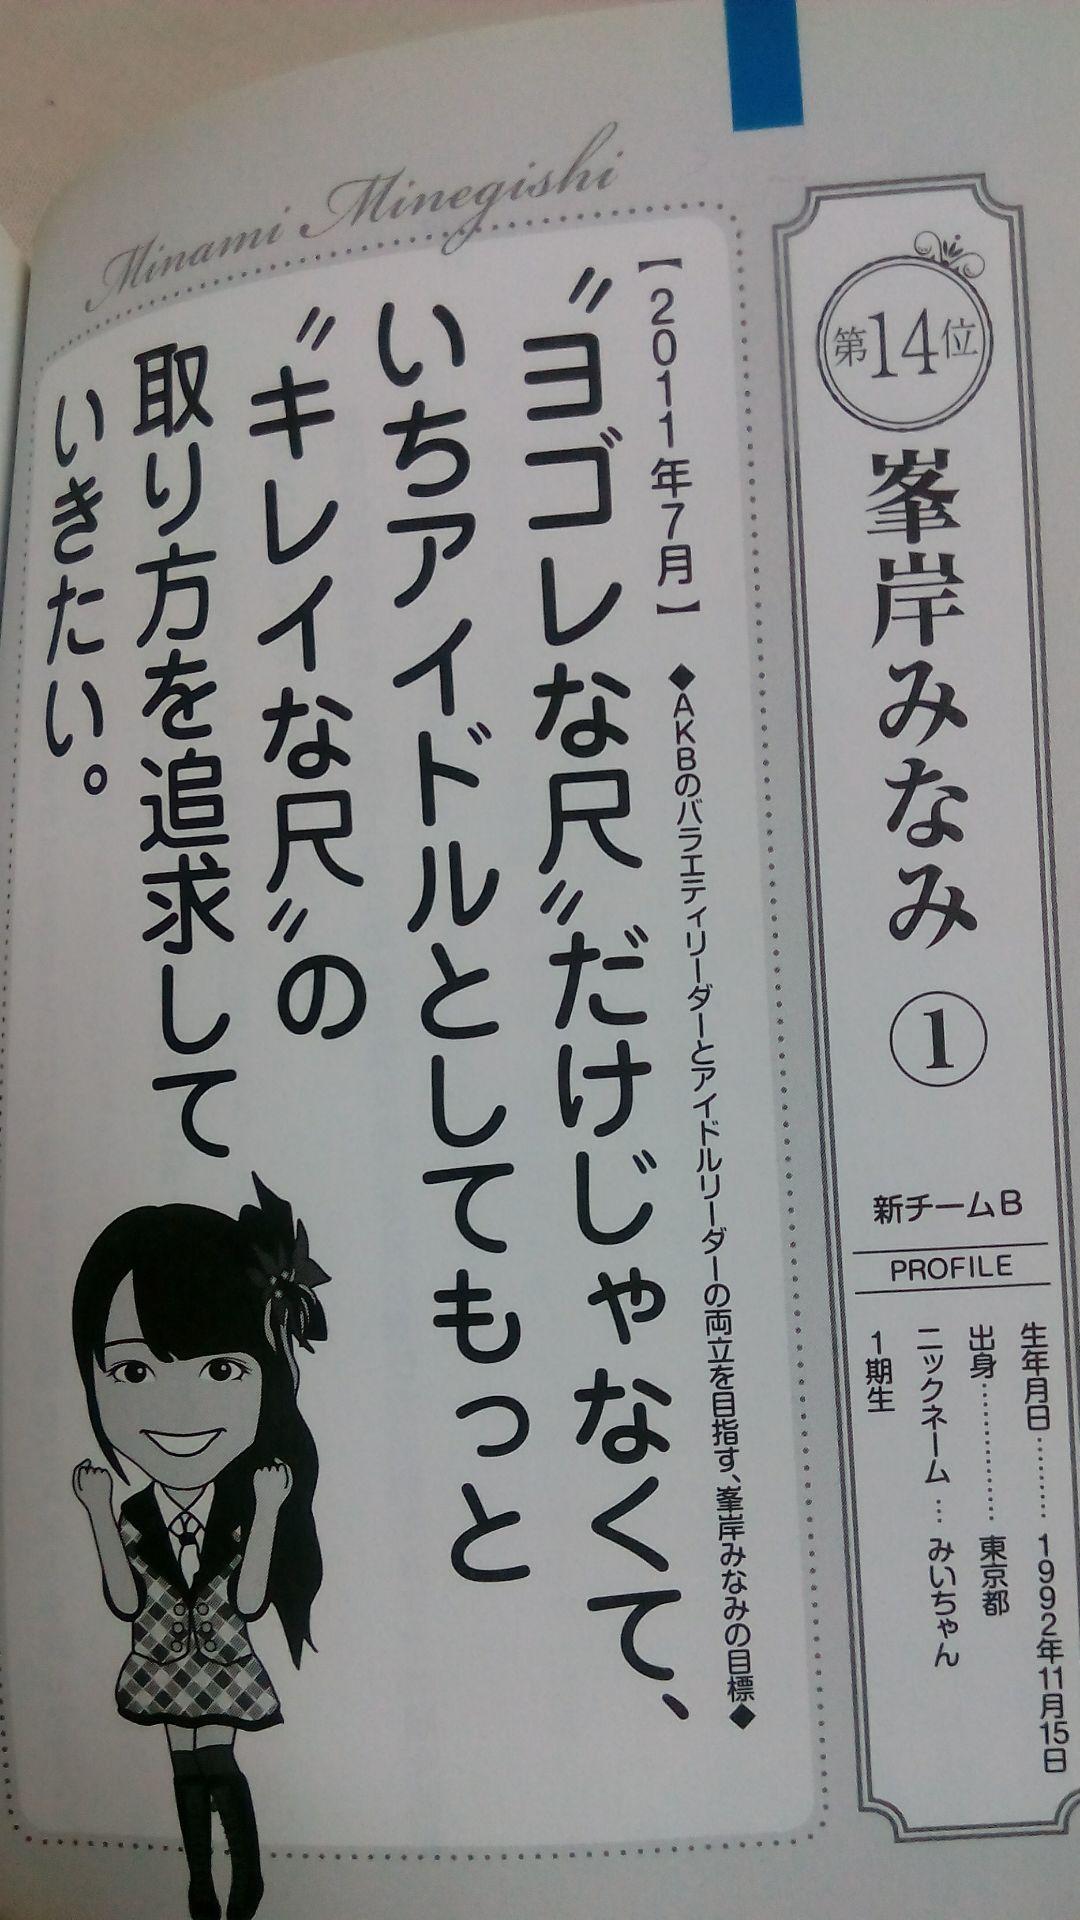 第14位
峯岸みなみ ①
新チームB
PROFILE
生年月日………1992年11月15日
出身…………東京都
ニックネーム…みいちゃん
1期生
Minami Minegishi
【2011年7月】
◆AKBのバラエティリーダーとアイドルリーダーの両立を目指す、峯岸みなみの目標◆
〝ヨゴレな尺〟だけじゃなくて、
いちアイドルとしてもっと
〝キレイな尺〟の
取り方を追求して
いきたい。